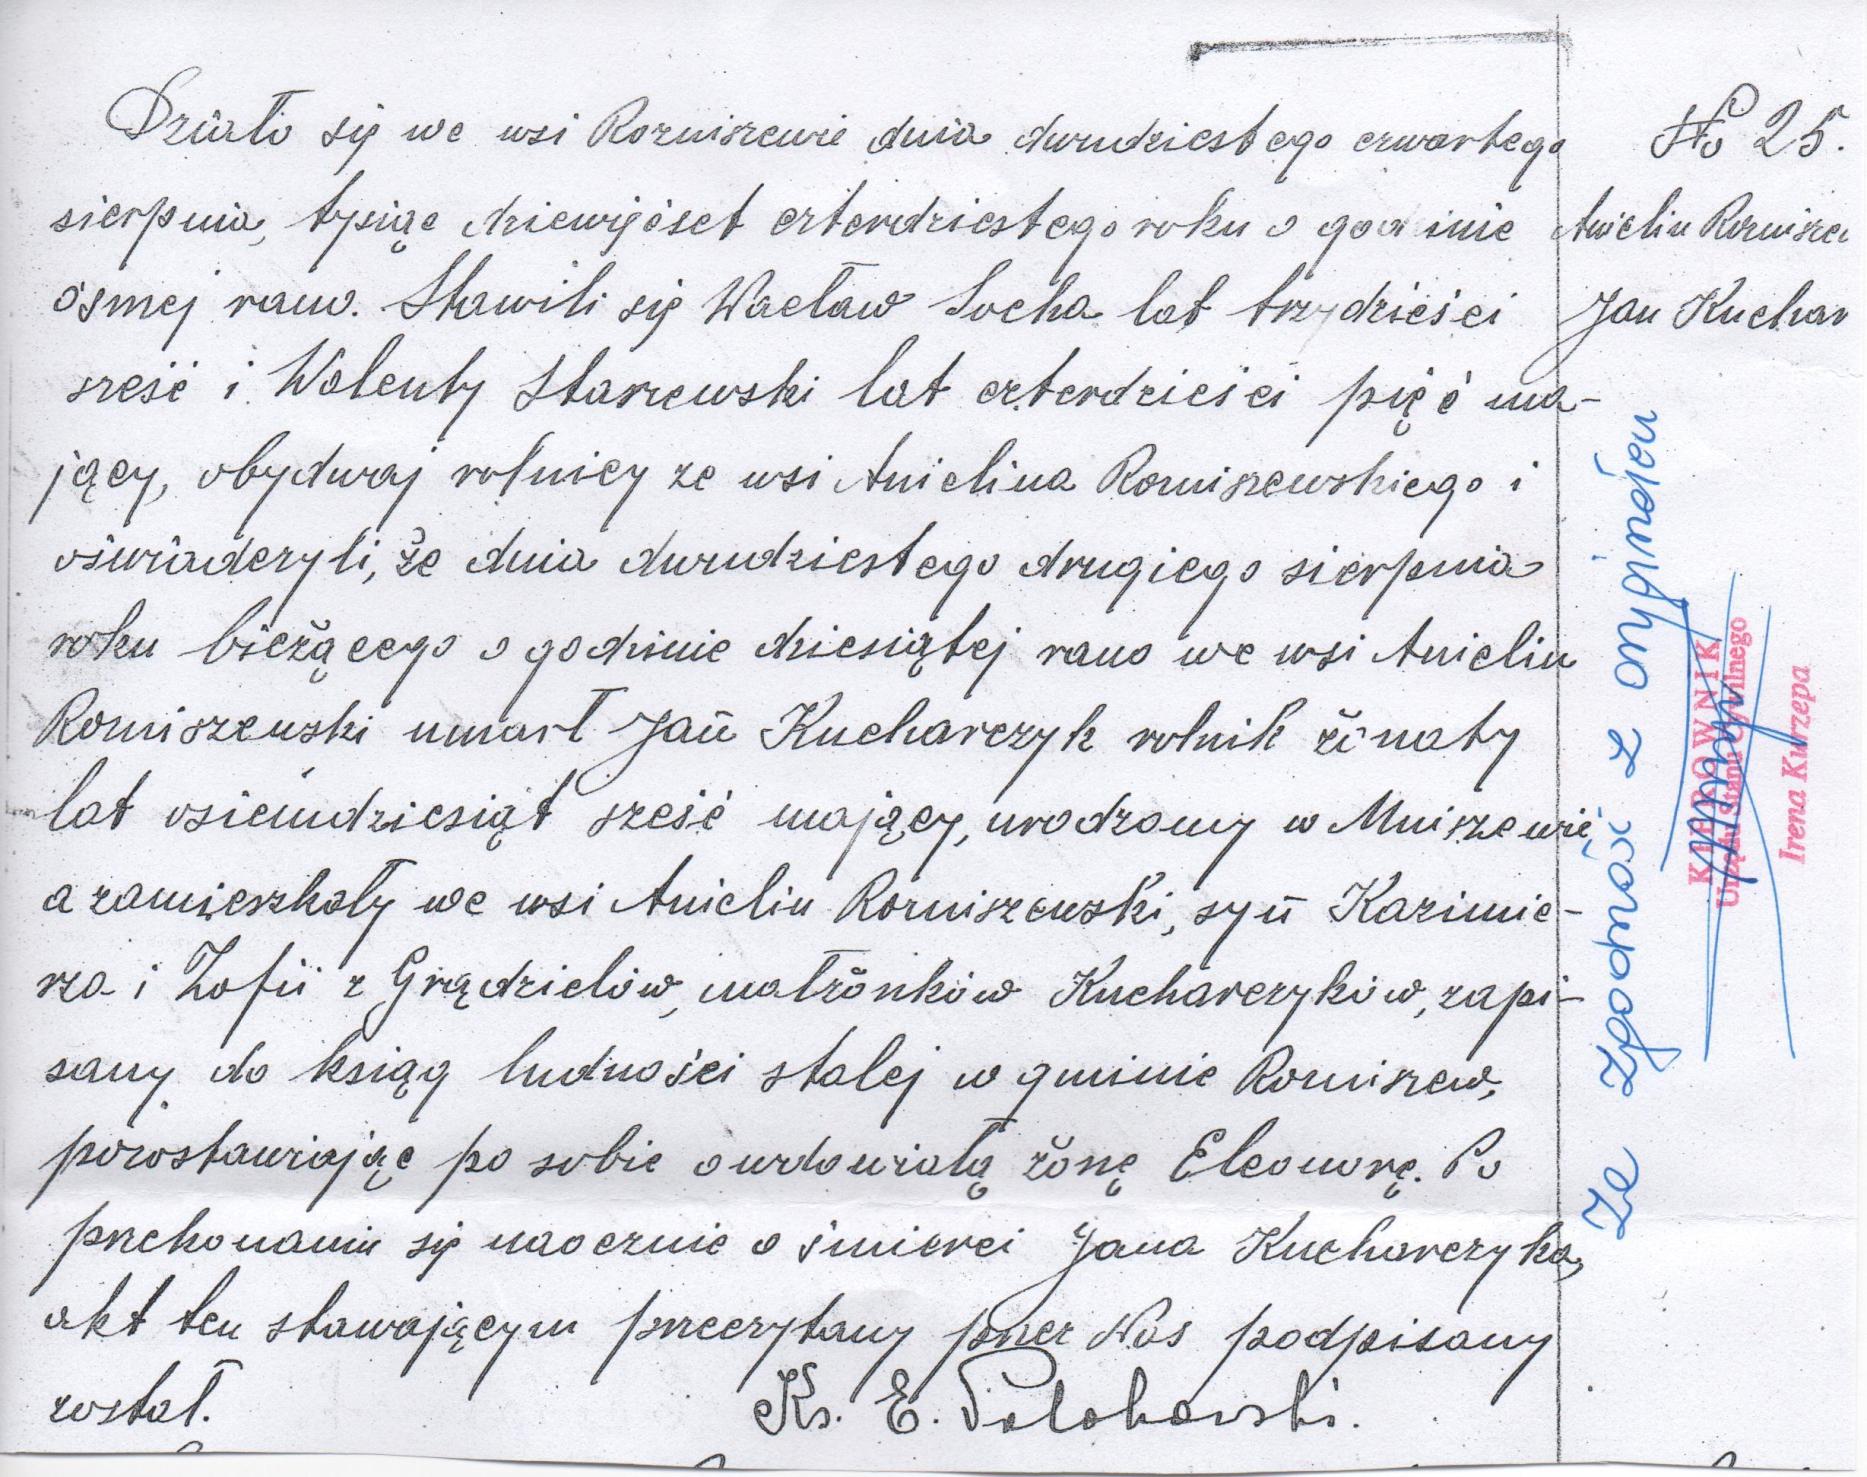 Działo się we wsi Rozniszewie dnia dwudziestego czwartego
sierpnia, tysiąc dziewięćset czterdziestego roku o godzinie
ósmej rano. Stawili się Wacław Socha lat trzydzieści
sześć i Walenty Starzewski lat czterdzieści pięć ma-
jący, obydwaj rolnicy ze wsi Anielina Rozniszewskiego i
oświadczyli, że dnia dwudziestego drugiego sierpnia
roku bieżącego o godzinie dziesiątej rano we wsi Anielin
Rozniszewski umarł Jan Kucharczyk rolnik żonaty
lat osiemdziesiąt sześć mający, urodzony w Mniszewie,
a zamieszkały we wsi Anielin Rozniszewski, syn Kazimie-
rza i Zofii z Grądzielów, małżonków Kucharczyków, zapi-
sany do ksiąg ludności stałej w gminie Rozniszew,
pozostawiając po sobie owdowiałą żonę Eleonorę. Po
przekonaniu się naocznie o śmierci Jana Kucharczyka,
akt ten stawającym przeczytany przez Nas podpisany
został.
Ks. E. Polohowski.
No 25.
Anielin Roznisze
Jan Kuchar
Za zgodność z oryginałem
KIEROWNIK
Urzędu Stanu Cywilnego
Irena Kurzepa